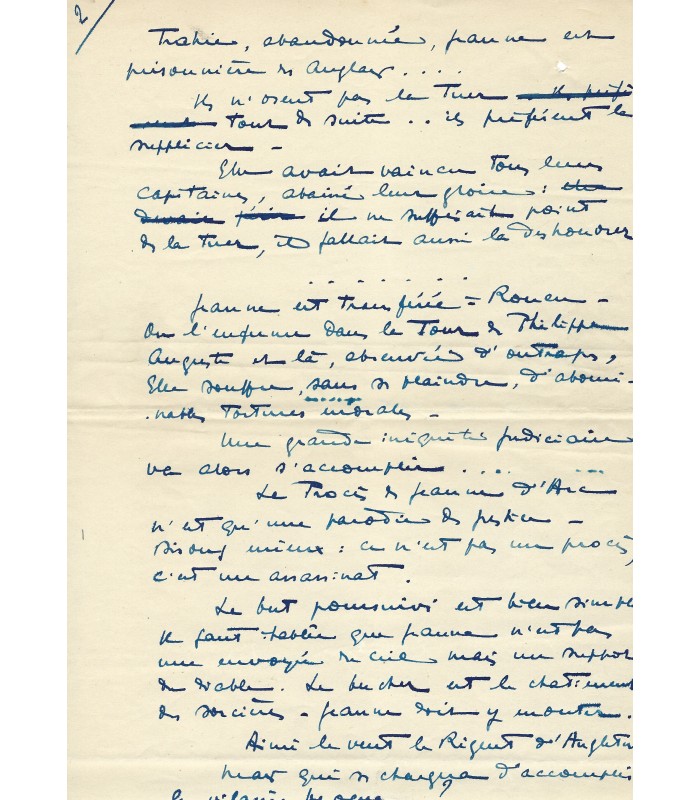 2
Trahie, abandonnée, Jeanne est
prisonnière des Anglais . . . .
Ils n'osent pas la tuer
tout de suite . . ils préfèrent la
supplicier -
Elle avait vaincu tous leurs
capitaines, abaissé leur gloire :
il ne suffisait point
de la tuer, il fallait aussi la déshonorer
. . . . . . .
Jeanne est transférée à Rouen -
On l'enferme dans la Tour de Philippe
Auguste et là, abreuvée d'outrages,
Elle souffre, sans se plaindre, d'abomi-
nables tortures morales -
Une grande iniquité judiciaire
va alors s'accomplir . . . . . . .
Le Procès de Jeanne d'Arc
n'est qu'une parodie de justice -
Disons mieux : ce n'est pas un procès,
c'est un assassinat.
Le but poursuivi est bien simple
Il faut établir que Jeanne n'est pas
une envoyée du ciel mais un suppot
du diable. Le bucher est le chatiment
des sorcières - Jeanne doit y monter.
Ainsi le veut le Régent d'Angleter
Mais qui se chargera d'accomplir
la vilaine besogne ?